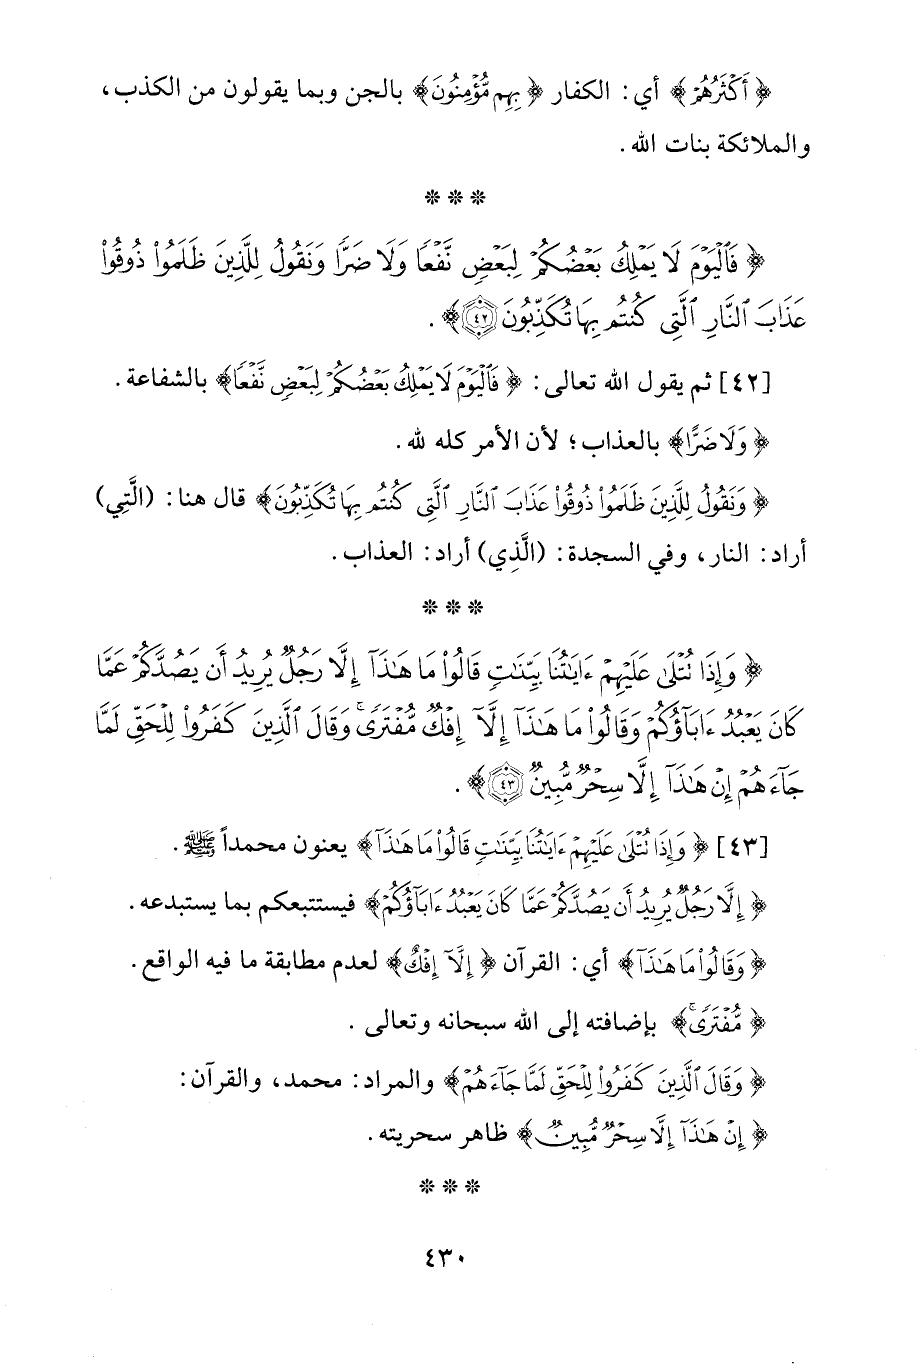 ﴿ أَكْثَرُهُمْ ﴾ أي: الكفار ﴿ بِهِم مُّؤْمِنُونَ﴾ بالجن وبما يقولون من الكذب،
والملائكة بنات الله.
***
﴿ فَٱلْيَوْمَ لَا يَمْلِكُ بَعْضُكُمْ لِبَعْضٍ نَّفْعًا وَلَا ضَرًّا وَنَقُولُ لِلَّذِينَ ظَلَمُوا۟ ذُوقُوا۟
عَذَابَ ٱلنَّارِ ٱلَّتِى كُنتُم بِهَا تُكَذِّبُونَ ٤٢﴾.
[٤٢] ثم يقول الله تعالى: ﴿ فَٱلْيَوْمَ لَا يَمْلِكُ بَعْضُكُمْ لِبَعْضٍ نَّفْعًا﴾ بالشفاعة.
﴿ وَلَا ضَرًّا﴾ بالعذاب؛ لأن الأمر كله لله.
﴿ وَنَقُولُ لِلَّذِينَ ظَلَمُوا۟ ذُوقُوا۟ عَذَابَ ٱلنَّارِ ٱلَّتِى كُنتُم بِهَا تُكَذِّبُونَ﴾ قال هنا: (الَّتِي)
أراد: النار، وفي السجدة: (الَّذِي) أراد: العذاب.
***
﴿ وَإِذَا تُتْلَىٰ عَلَيْهِمْ ءَايَٰتُنَا بَيِّنَٰتٍ قَالُوا۟ مَا هَٰذَآ إِلَّا رَجُلٌ يُرِيدُ أَن يَصُدَّكُمْ عَمَّا
كَانَ يَعْبُدُ ءَابَآؤُكُمْ وَقَالُوا۟ مَا هَٰذَآ إِلَّآ إِفْكٌ مُّفْتَرًى ۚ وَقَالَ ٱلَّذِينَ كَفَرُوا۟ لِلْحَقِّ لَمَّا
جَآءَهُمْ إِنْ هَٰذَآ إِلَّا سِحْرٌ مُّبِينٌ ٤٣﴾.
[٤٣] ﴿ وَإِذَا تُتْلَىٰ عَلَيْهِمْ ءَايَٰتُنَا بَيِّنَٰتٍ قَالُوا۟ مَا هَٰذَآ﴾ يعنون محمداً ﷺ.
﴿ إِلَّا رَجُلٌ يُرِيدُ أَن يَصُدَّكُمْ عَمَّا كَانَ يَعْبُدُ ءَابَآؤُكُمْ﴾ فيستتبعكم بما يستبدعه.
﴿ وَقَالُوا۟ مَا هَٰذَآ﴾ أي: القرآن ﴿ إِلَّآ إِفْكٌ﴾ لعدم مطابقة ما فيه الواقع.
﴿ مُّفْتَرًى ۚ﴾ بإضافته إلى الله سبحانه وتعالى.
﴿ وَقَالَ ٱلَّذِينَ كَفَرُوا۟ لِلْحَقِّ لَمَّا جَآءَهُمْ﴾ والمراد: محمد، والقرآن:
﴿ إِنْ هَٰذَآ إِلَّا سِحْرٌ مُّبِينٌ﴾ ظاهر سحريته.
***
٤٣٠